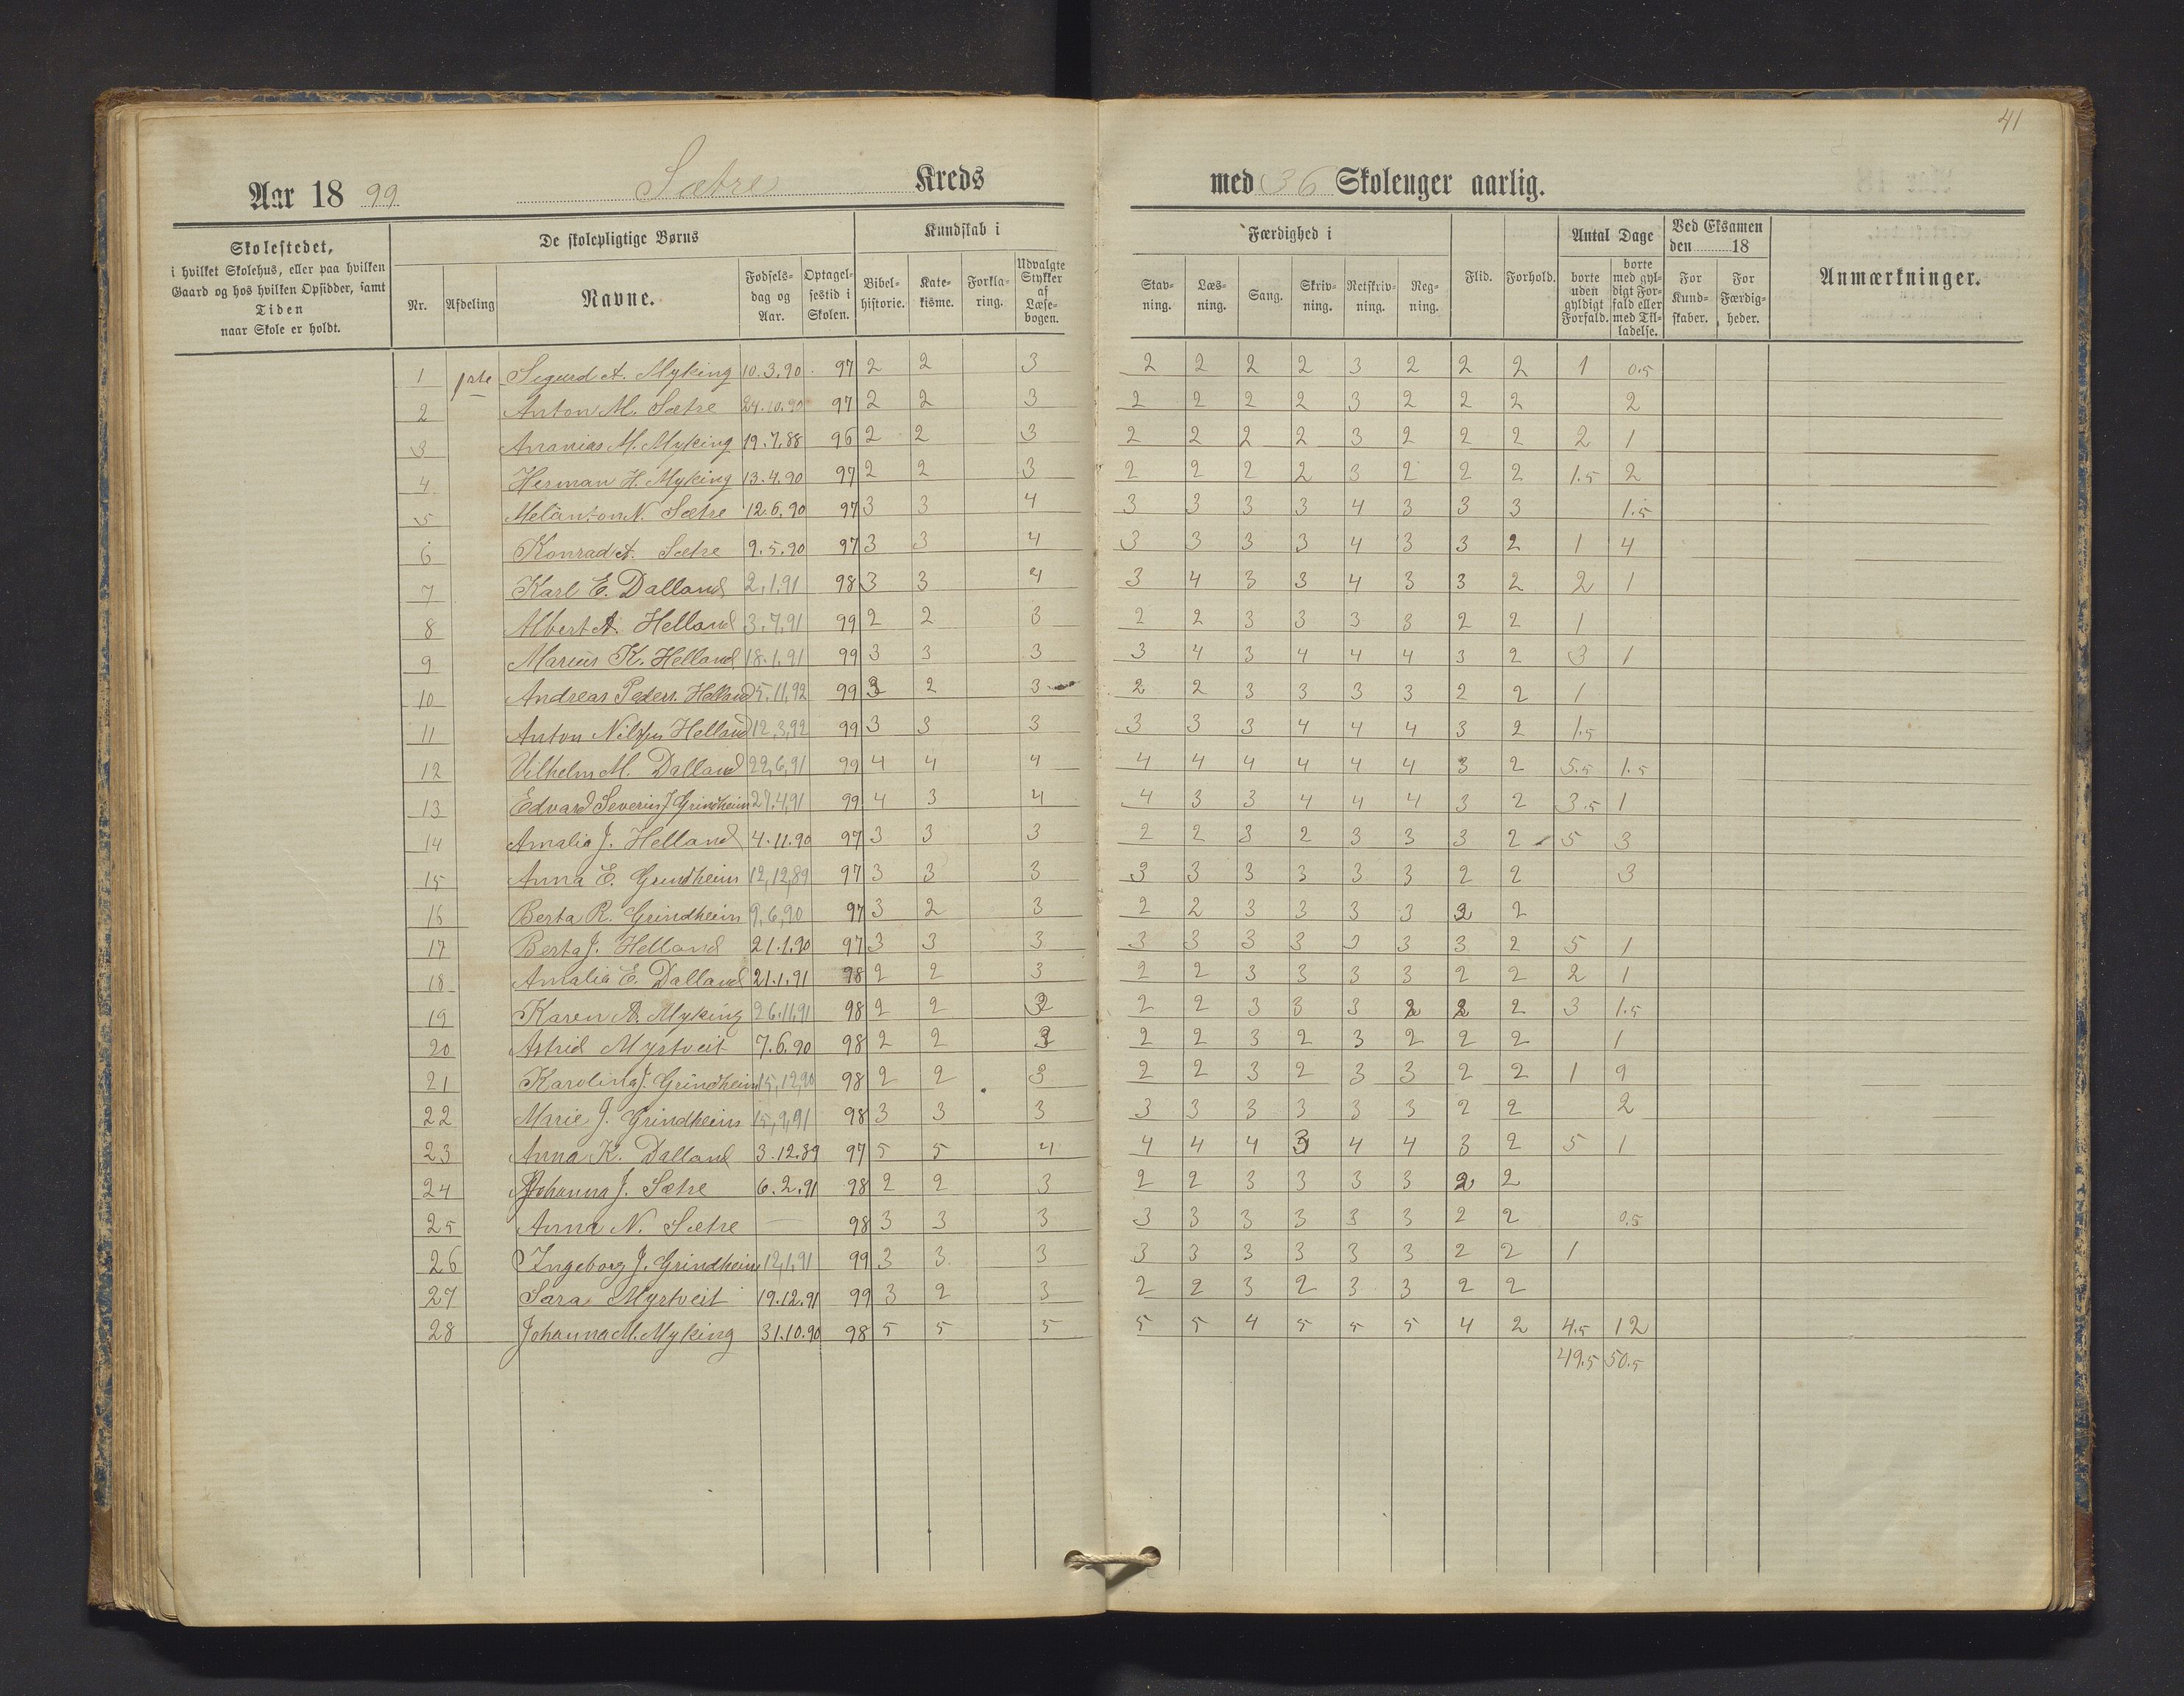 41
Aar 1899 Sætre Kreds med 36 Skoleuger aarlig.
Skolestedet, i hvilket Skolehus, eller paa hvilken Gaard og hos hvilken Opsidder, samt Tiden naar Skole er holdt.
De skolepligtige Børns
Nr. Afdeling Navne. Fødsels-dag og Aar. Optagel-sestid i Skolen.
Kundskab i
Bibel-historie. Kate-kisme. Forkla-ring. Udvalgte Stykker af Læse-bogen.
Færdighed i
Stav-ning. Læs-ning. Sang. Skriv-ning. Retskriv-ning. Reg-ning. Flid. Forhold.
Antal Dage
borte uden gyldigt Forfald. borte med gyl-digt For-fald eller med Til-ladelse.
Ved Eksamen den 18
For Kund-skaber. For Færdig-heder.
Anmærkninger.
1 1ste Sigurd A. Myking 10.3.90 97 2 2 3 2 2 2 2 3 2 2 2 1 0.5
2 Anton M. Sætre 24.10.90 97 2 2 3 2 2 2 2 3 2 2 2 2
3 Ananias M. Myking 19.7.88 96 2 2 3 2 2 2 2 3 2 2 2 2 1
4 Herman H. Myking 13.4.90 97 2 2 3 2 2 2 2 3 2 2 2 1.5 2
5 Melankton N. Sætre 12.6.90 97 3 3 4 3 3 3 3 4 3 3 3 1.5
6 Konrad A. Sætre 9.5.90 97 3 3 4 3 3 3 3 4 3 3 2 1 4
7 Karl E. Dalland 2.1.91 98 3 3 4 3 4 3 3 4 3 3 2 2 1
8 Albert A. Helland 3.7.91 99 2 2 3 2 2 3 3 3 3 2 2 1
9 Marius K. Helland 18.1.91 99 3 3 3 3 4 3 4 4 4 3 2 3 1
10 Andreas Peders. Helland 5.11.92 99 3 2 3 2 2 3 3 3 3 2 2 1
11 Anton Nilsen Helland 12.3.92 99 3 3 3 3 3 3 4 4 4 3 2 1.5
12 Vilhelm M. Dalland 22.6.91 99 4 4 4 4 4 4 4 4 4 3 2 5.5 1.5
13 Edvard Severin J Grindheim 27.4.91 99 4 3 4 4 3 3 4 4 4 3 2 3.5 1
14 Amalia J. Helland 4.11.90 97 3 3 3 2 2 3 2 3 3 3 2 5 3
15 Anna E. Grindheim 12,12,89 97 3 3 3 3 3 3 3 3 3 2 2 3
16 Berta R. Grindheim 9,6,90 97 3 2 3 2 2 3 3 3 3 2 2
17 Berta J. Helland 21.1.90 97 3 3 3 3 3 3 3 3 3 3 2 5 1
18 Amalia E. Dalland 21.1.91 98 2 2 3 2 2 3 3 3 3 2 2 2 1
19 Karen A. Myking 26.11.91 98 2 2 3 2 2 3 3 3 2 2 2 3 1.5
20 Astrid Myrtveit 7.6.90 98 2 2 3 2 2 3 2 3 2 2 2 1
21 Karolina J. Grindheim 15,12,90 98 2 2 3 2 2 3 2 3 3 2 2 1 9
22 Marie J. Grindheim 15,9,91 98 3 3 3 3 3 3 3 3 3 2 2 2
23 Anna K. Dalland 3.12.89 97 5 5 4 4 4 4 3 4 4 3 2 5 1
24 Johanna J. Sætre 6.2.91 98 2 2 3 2 2 3 3 3 3 2 2
25 Anna N. Sætre 98 3 3 3 3 3 3 3 3 3 2 2 0.5
26 Ingeborg J. Grindheim 12,1,91 99 3 3 3 3 3 3 3 3 3 2 2 1
27 Sara Myrtveit 19.12.91 99 3 2 3 2 2 3 2 3 3 2 2
28 Johanna M. Myking 31.10.90 98 5 5 5 5 5 4 5 5 5 4 2 4.5 12
49.5 50.5